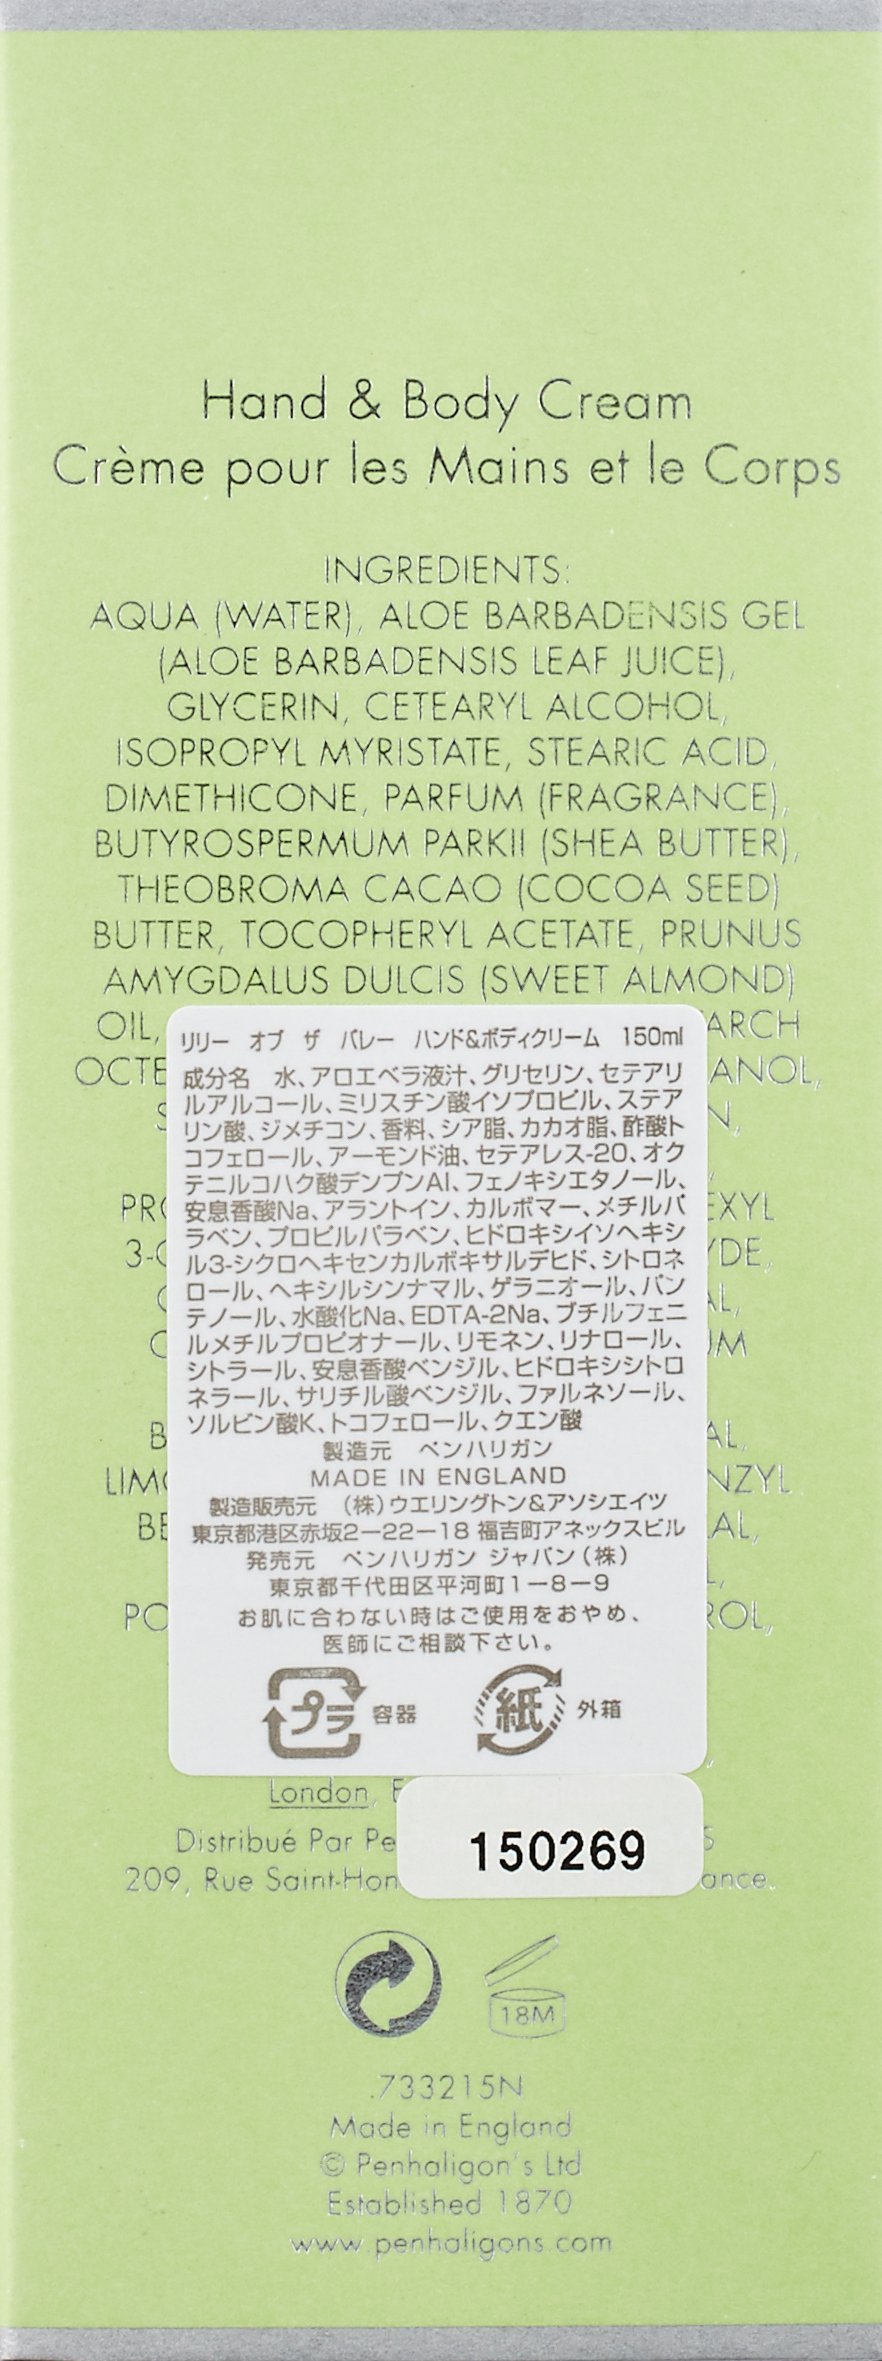 Hand & Body Cream
Crème pour les Mains et le Corps
INGREDIENTS:
AQUA (WATER), ALOE BARBADENSIS GEL
(ALOE BARBADENSIS LEAF JUICE),
GLYCERIN, CETEARYL ALCOHOL,
ISOPROPYL MYRISTATE, STEARIC ACID,
DIMETHICONE, PARFUM (FRAGRANCE),
BUTYROSPERMUM PARKII (SHEA BUTTER),
THEOBROMA CACAO (COCOA SEED)
BUTTER, TOCOPHERYL ACETATE, PRUNUS
AMYGDALUS DULCIS (SWEET ALMOND)
OIL,
リリー オブ ザ バレー ハンド&ボディクリーム 150ml
成分名 水、アロエベラ液汁、グリセリン、セテアリ
ルアルコール、ミリスチン酸イソプロピル、ステア
リン酸、ジメチコン、香料、シア脂、カカオ脂、酢酸ト
コフェロール、アーモンド油、セテアレス-20、オク
テニルコハク酸デンプンAl、フェノキシエタノール、
安息香酸Na、アラントイン、カルボマー、メチルパ
ラベン、プロピルパラベン、ヒドロキシイソヘキシ
ル3-シクロヘキセンカルボキサルデヒド、シトロネ
ロール、ヘキシルシンナマル、ゲラニオール、パン
テノール、水酸化Na、EDTA-2Na、ブチルフェニ
ルメチルプロピオナール、リモネン、リナロール、
シトラール、安息香酸ベンジル、ヒドロキシシトロ
ネラール、サリチル酸ベンジル、ファルネソール、
ソルビン酸K、トコフェロール、クエン酸
製造元 ペンハリガン
MADE IN ENGLAND
製造販売元 (株)ウエリングトン&アソシエイツ
東京都港区赤坂2－22－18 福吉町アネックスビル
発売元 ペンハリガン ジャパン(株)
東京都千代田区平河町1－8－9
お肌に合わない時はご使用をおやめ、
医師にご相談下さい。
プラ 容器 紙 外箱
London,
Distribué Par
150269
209, Rue
18M
.733215N
Made in England
© Penhaligon's Ltd
Established 1870
www.penhaligons.com